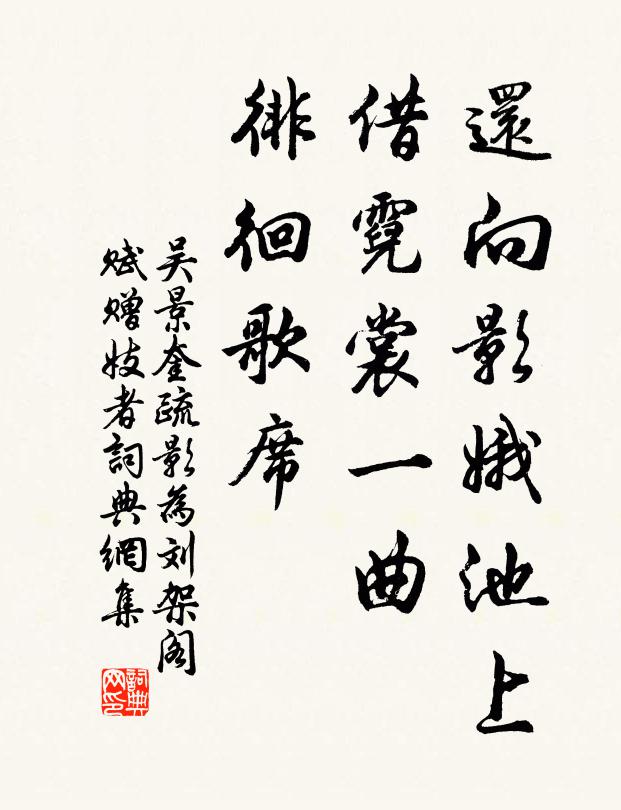 還向影娥池上
借霓裳一曲
徘徊歌席
吴景奎疏影為刘架阁
赋赠妓者詞典網集
詞典网印